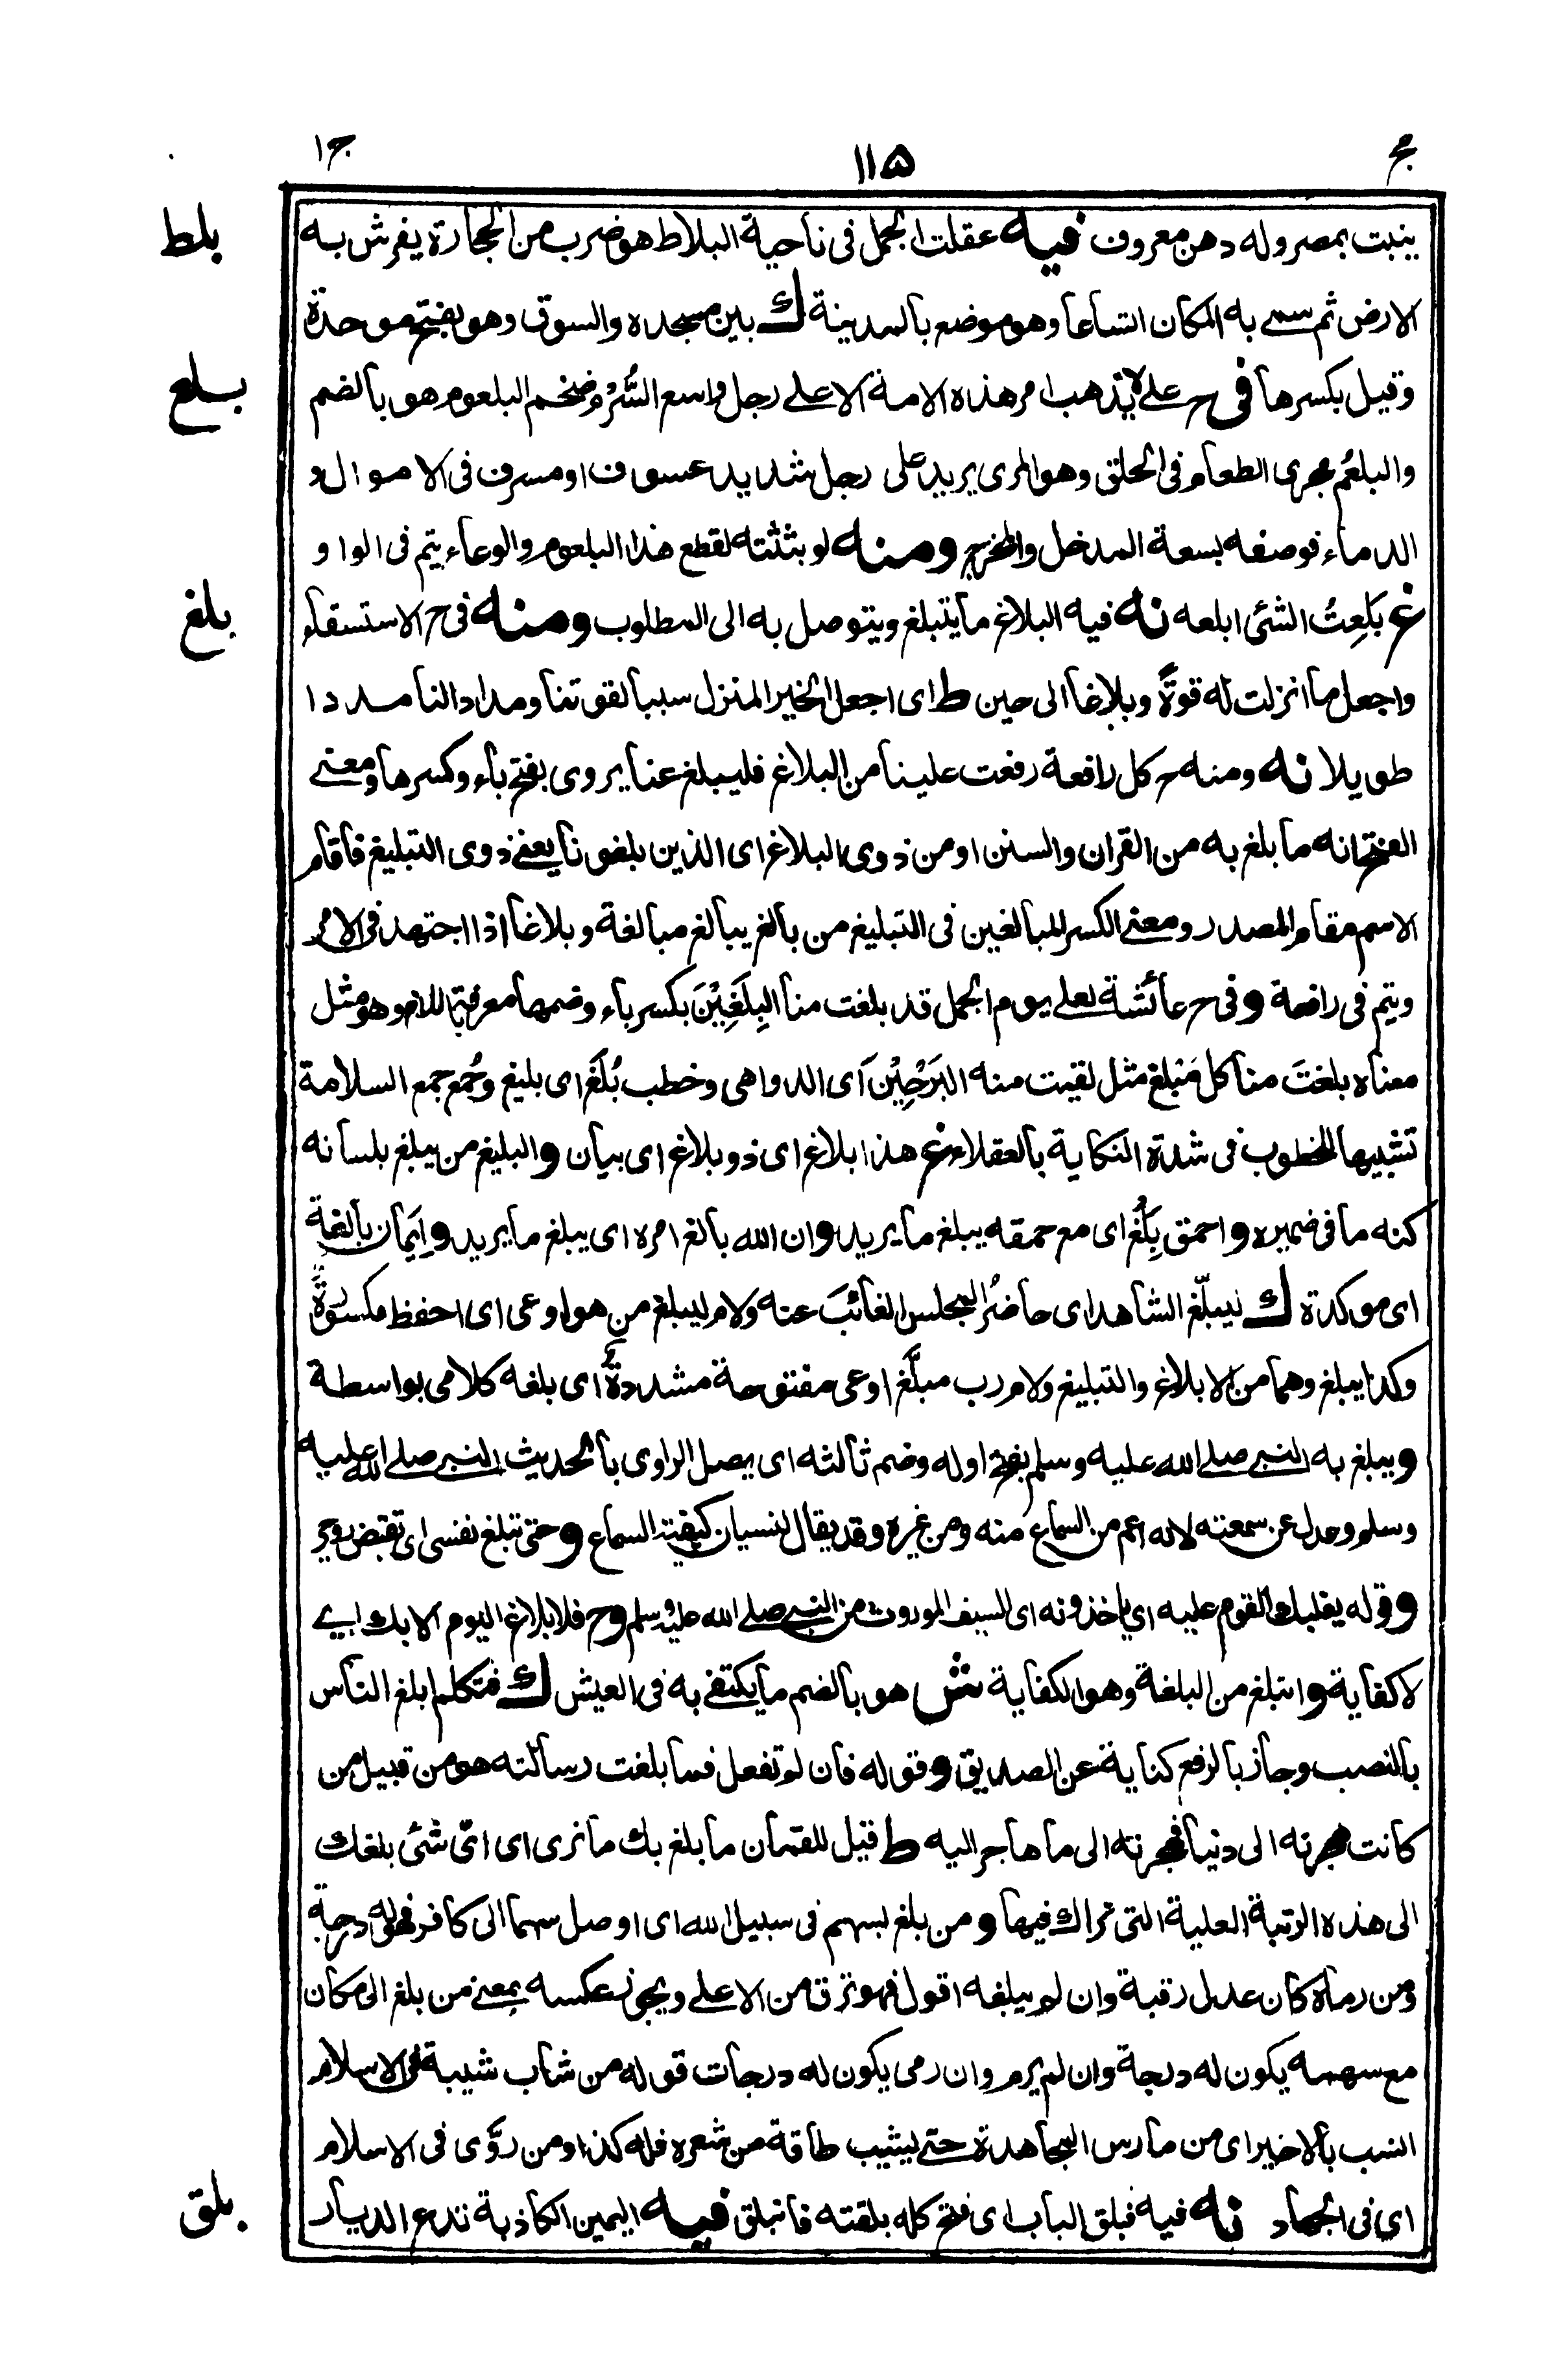 مج
۱۱۵
ج۱
ينبت بمصر وله دهن معروف فيه عقلت الجمل فى ناحية البلاط هو ضرب من الحجارة يفرش به
بلط
الارض ثم سمي به المكان اتساعا وهو موضع بالمدينة ك بين مسجده والسوق وهو بفتح موحدة
وقيل بكسرها فى ح على لا يذهب امر هذه الامة الا على رجل واسع السُّرْم ضخم البلعوم هو بالضم
بلع
والبلعُم مجرى الطعام فى الحلق وهو المرى يريد على رجل شديد عسوف او مسرف فى الاموال و
الدماء فوصفه بسعة المدخل والمخرج ومنه لو بثثته لقطع هذا البلعوم والوعاء يتم فى الواو
غ بَلِعتُ الشئ ابلعه نه فيه البلاغ ما يتبلغ ويتوصل به الى المطلوب ومنه فى ح الاستسقاء
بلغ
واجعل ما انزلت له قوةً وبلاغا الى حين ط اى اجعل الخير المنزل سببا لقوتنا ومدادا لنا مددا
طويلا نه ومنه ح كل رافعة رفعت علينا من البلاغ فليبلغ عنا يروى بفتح باء وكسرها ومعنى
الفتح انه ما بلغ به من القران والسنن او من ذوى البلاغ اى الذين بلغونا يعنى ذوى التبليغ فاقام
الاسم مقام المصدر ومعنى الكسر المبالغين فى التبليغ من بالغ يبالغ مبالغة وبلاغا اذا اجتهد فى الامر
ويتم فى رافعة وفى ح عائشة لعلى يوم الجمل قد بلغت منا البِلَغِيْنَ بكسر باء وضمها معرفة باللام وهو مثل
معناه بلغتَ منا كل مَبْلغ مثل لقيت منه البَرَحِيْنَ اى الدواهى وخطب بُلَغ اى بليغ وجُمع جمع السلامة
تشبيها للخطوب فى شدة النكاية بالعقلاء غ هذا بلاغ اى ذو بلاغ اى بيان والبليغ من يبلغ بلسانه
كنه ما فى ضميره واحمق بِلْغ اى مع حمقه يبلغ ما يريد وان الله بالغ امره اى يبلغ ما يريد وايمان بالغة
اى موكدة ك ليبلّغ الشاهد اى حاضرُ المجلس الغائبَ عنه ولام ليبلغ من هو اوعى اى احفظ مكسورةٌ
وكذا يبلغ وهما من الابلاغ والتبليغ ولام رب مبلَّغ اوعى مفتوحة مشددةٌ اى بلغه كلامى بواسطة
ويبلغ به النبي صلى الله عليه وسلم بفتح اوله وضم ثالثه اى يصل الراوى بالحديث النبي صلى الله عليه
وسلم وعدل عن سمعته لانه اعم من السماع منه ومن غيره وقد يقال لنسيان كيفية السماع وحتى تبلغ نفسى اى تقبض روحي
وقوله يغلبك القوم عليه اي ياخذونه اى السيف الموروث من النبي صلى الله عليه وسلم وح فلا بلاغ اليوم الا بك اي
لا كفاية واتبلغ من البلغة وهو الكفاية ش هو بالضم ما يكتفى به فى العيش ك فتكلم ابلغ الناس
بالنصب وجاز بالرفع كناية عن الصديق وقوله فان لم تفعل فما بلغت رسالته هو من قبيل من
كانت هجرته الى دنيا فهجرته الى ما هاجر اليه ط قيل للقمان ما بلغ بك ما نرى اى اىّ شئ بلغك
الى هذه الرتبة العلية التى نراك فيها ومن بلغ بسهم فى سبيل الله اى اوصل سهما الى كافر فهو له درجة
ومن رماه كان عدل رقبة وان لم يبلغه اقول فهو ترق من الاعلى ويجوز عكسه بمعنى من بلغ الى مكان
مع سهمه يكون له درجة وان لم يرم وان رمى يكون له درجات قوله من شاب شيبة فى الاسلام
انسب بالاخير اى من مارس المجاهدة حتى يشيب طاقة من شعره فله كذا ومن روّى فى الاسلام
اي فى الجهاد نه فيه فبلق الباب اى فتح كله بلقته فانبلق فيه اليمين الكاذبة تدع الديار
بلق